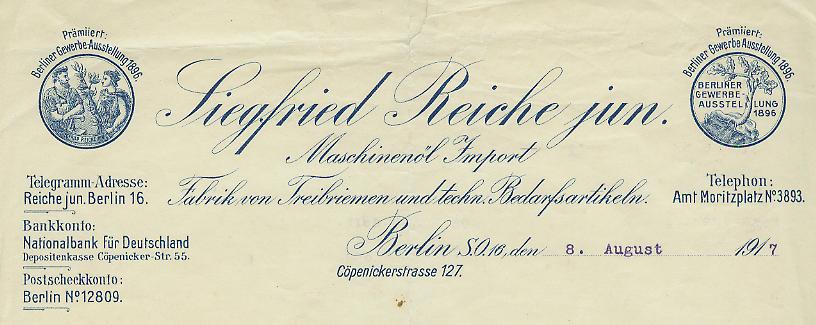 Prämiiert:
Berliner Gewerbe-Ausstellung 1896.
Prämiiert:
Berliner Gewerbe Ausstellung 1896.
BERLINER
GEWERBE-
AUSSTEL LUNG
1896
Siegfried Reiche jun.
Maschinenöl Import
Fabrik von Treibriemen und techn. Bedarfsartikeln.
Telegramm-Adresse:
Reiche jun. Berlin 16.
Telephon:
Amt Moritzplatz No 3893.
Bankkonto:
Nationalbank für Deutschland
Depositenkasse Cöpenicker-Str. 55.
Postscheckkonto:
Berlin No 12809.
Berlin S.O.16, den 8. August 1917
Cöpenickerstrasse 127.